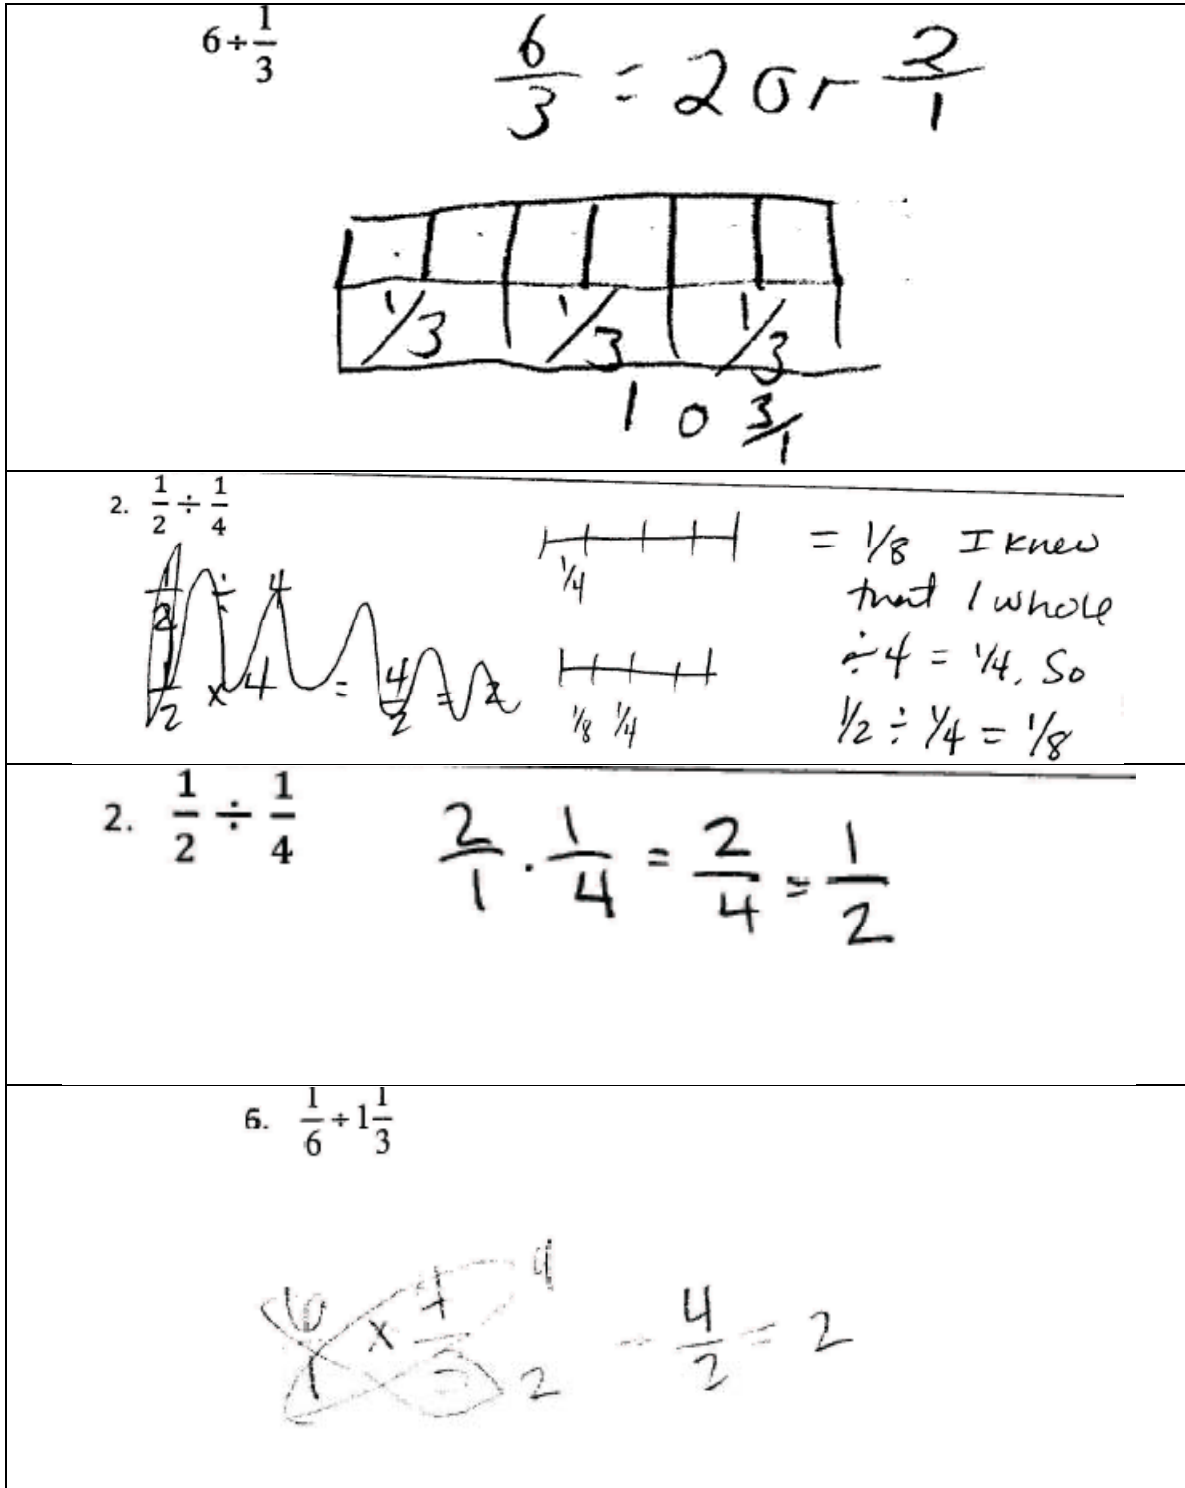 6÷1/3
6/3 = 2 or 2/1
1/3 1/3 1/3
1 0 3/1
2. 1/2 ÷ 1/4
1/2 ÷ 4
1/2 × 4 = 4/2 = 2
1/4
1/8 1/4
= 1/8 I knew
that 1 whole
÷ 4 = 1/4. So
1/2 ÷ 1/4 = 1/8
2. 1/2 ÷ 1/4
2/1 · 1/4 = 2/4 = 1/2
6. 1/6 ÷ 1 1/3
6/1 ×
4
2
4/2 = 2